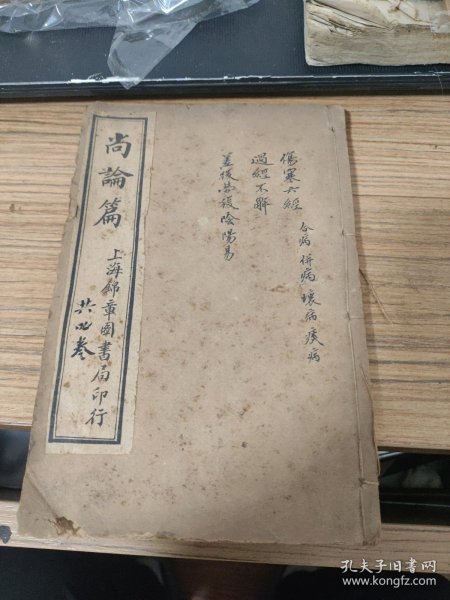 傷寒六經
合病併病壞病痰病
過經不解
差後勞復陰陽易
尚論篇
上海錦章圖書局印行
共四卷
孔夫子旧书网
www.kongfz.com